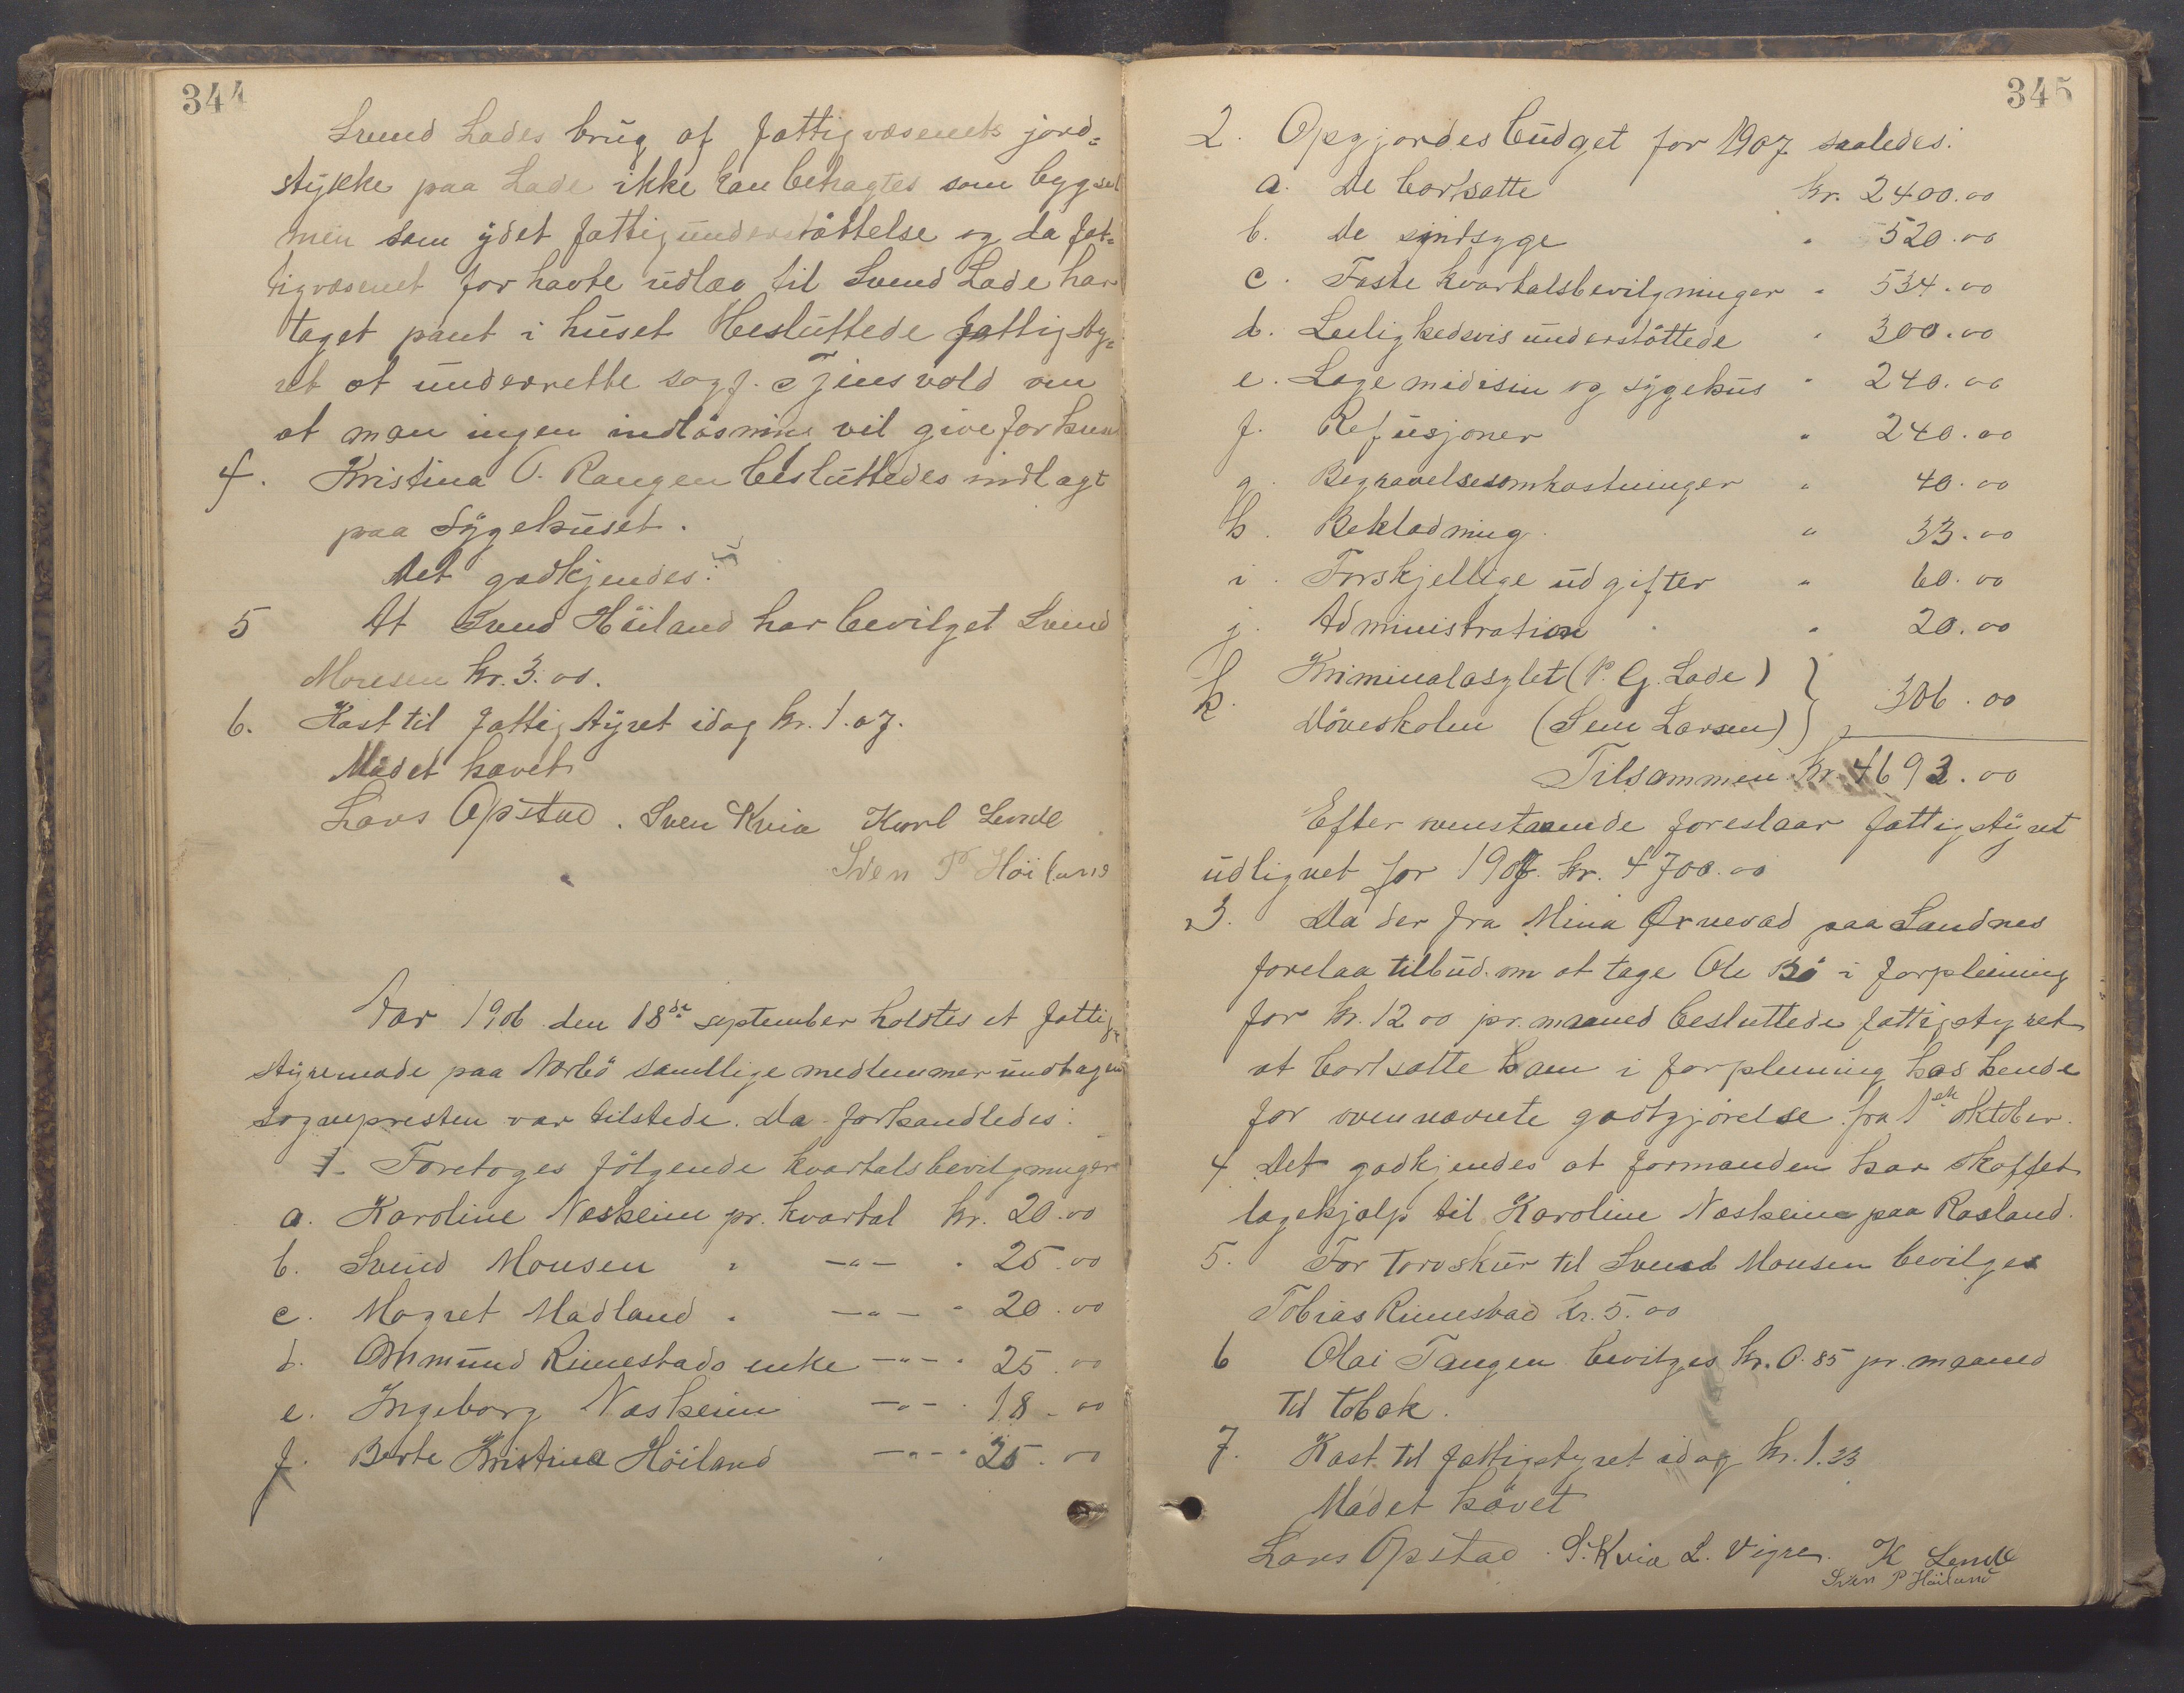 344
Svend Lades brug af fattigvæsenets jord=
stykke paa Lade ikke kan betragtes som bygsel
men som ydet fattigunderstöttelse og da fat=
tigvæsenet for havte udlæg til Svend Lade har
taget pant i huset besluttede fattigsty=
ret at underrette sagf. Tjensvold om
at man ingen indløsning vil give for huset
4. Kristina O. Rangen besluttedes indlagt
paa Sygehuset.
Det godkjendes:
5 At Svend Höiland har bevilget Svend
Monsen kr. 3.00.
6. Kost til fattigstyret idag kr. 1.07.
Mødet hævet
Lars Opstad. Sven Kvia Karl Lende
Sven P Höiland
Aar 1906 den 18de september holdtes et fattig=
styremøde paa Nærbö samtlige medlemmer undtagen
sognepresten var tilstede. Da forhandledes:
1. Foretoges fölgende kvartalsbevilgninger
a. Karoline Næsheim pr. kvartal kr. 20.00
b. Svend Monsen " —"— " 25.00
c. Magret Madland " —"— " 20.00
d. Ommund Rimestads enke —"— " 25.00
e. Ingeborg Næsheim —"— " 18.00
f. Berte Kristine Höiland —"— " 25.00
345
2. Opgjordes budget for 1907 saaledes:
a. De bortsatte kr. 2400.00
b. De sindsyge " 520.00
c. Faste kvartalsbevilgninger " 534.00
d. Leilighedsvis understöttede " 300.00
e. Læge midisin og sygehus " 240.00
f. Refusjoner " 240.00
g. Begravelsesomkostninger " 40.00
h. Beklædning " 33.00
i. Forskjellige udgifter " 60.00
j. Administration " 20.00
k. Kriminalasylet (P. G. Lade) } 306.00
Döveskolen (Sem Larsen)
Tilsammen kr. 4693.00
Efter ovenstaaende foreslaar fattigstyret
udlignet for 1907. kr. 4700.00
3. Da der fra Mina Ørnevad paa Sandnes
forelaa tilbud om at tage Ole Bö i forpleining
for kr. 12 00 pr. maaned besluttede fattigstyret
at bortsætte ham i forpleining hos hende
for ovennævnte godtgjörelse fra 1ste oktober.
4 Det godkjendes at formanden har skaffet
lægehjælp til Karoline Næsheim paa Rasland.
5. For torvskur til Svend Monsen bevilges
Tobias Rimestad kr. 5.00
6 Olai Tangen bevilges kr. 0.85 pr. maaned
til tobak.
7. Kost til fattigstyret idag kr. 1.23
Mødet hævet
Lars Opstad. S. Kvia L. Vigre. K Lende
Sven P Höiland